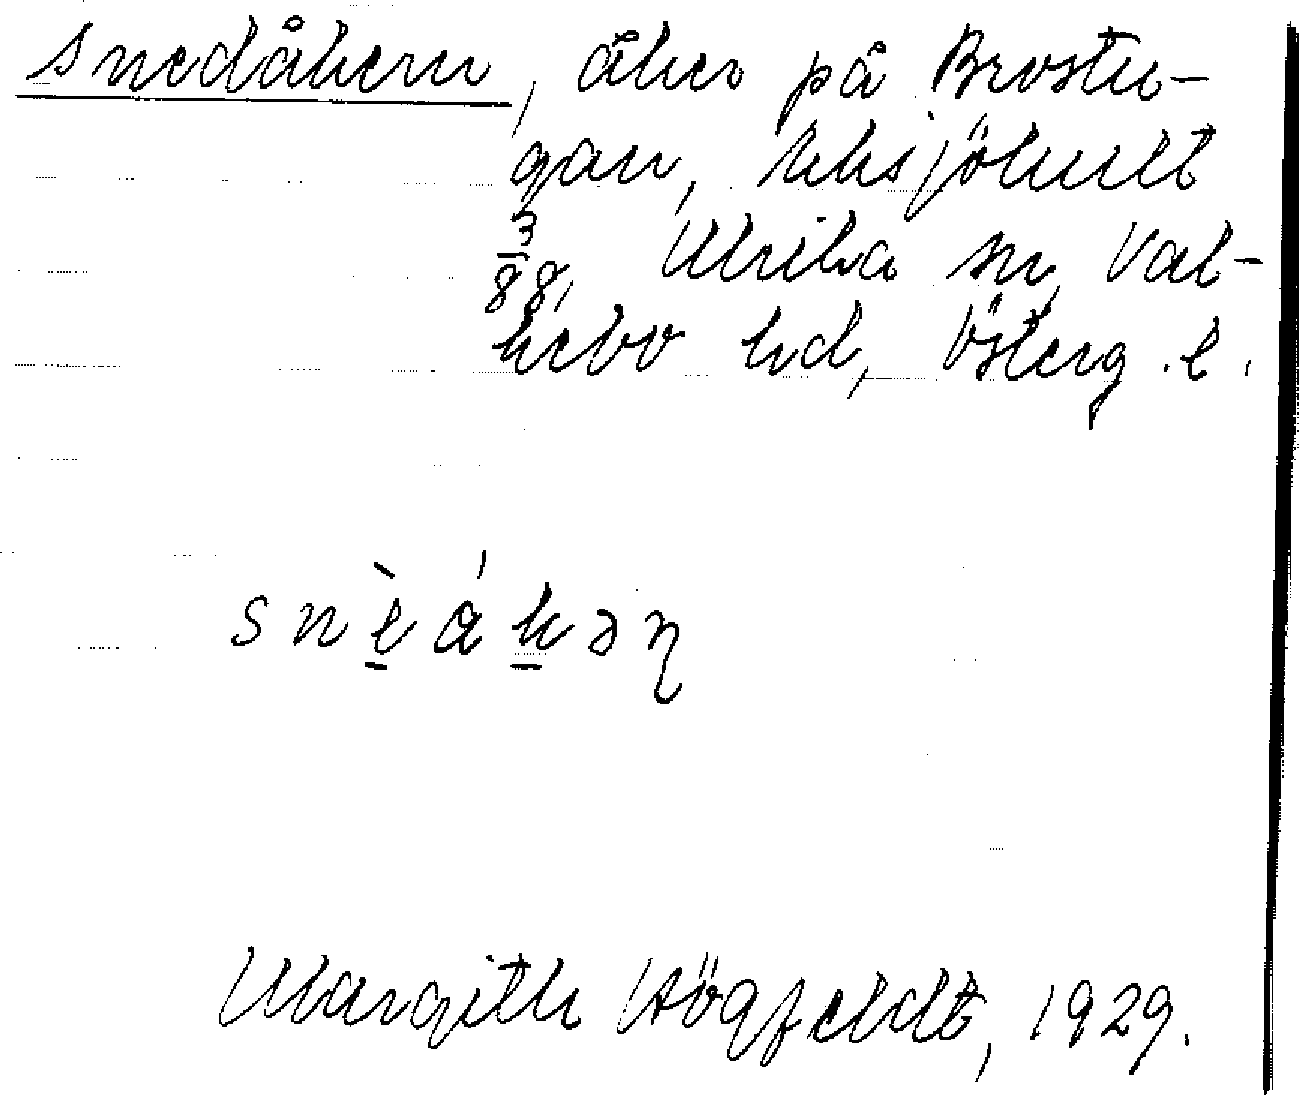 Snedåkern, åker på Brostu-
gan, Uksjöhult
3/88, Ulrika sn, Val-
kebo hd, Österg. l.
snèákəɳ
Margith Högfeldt, 1929.